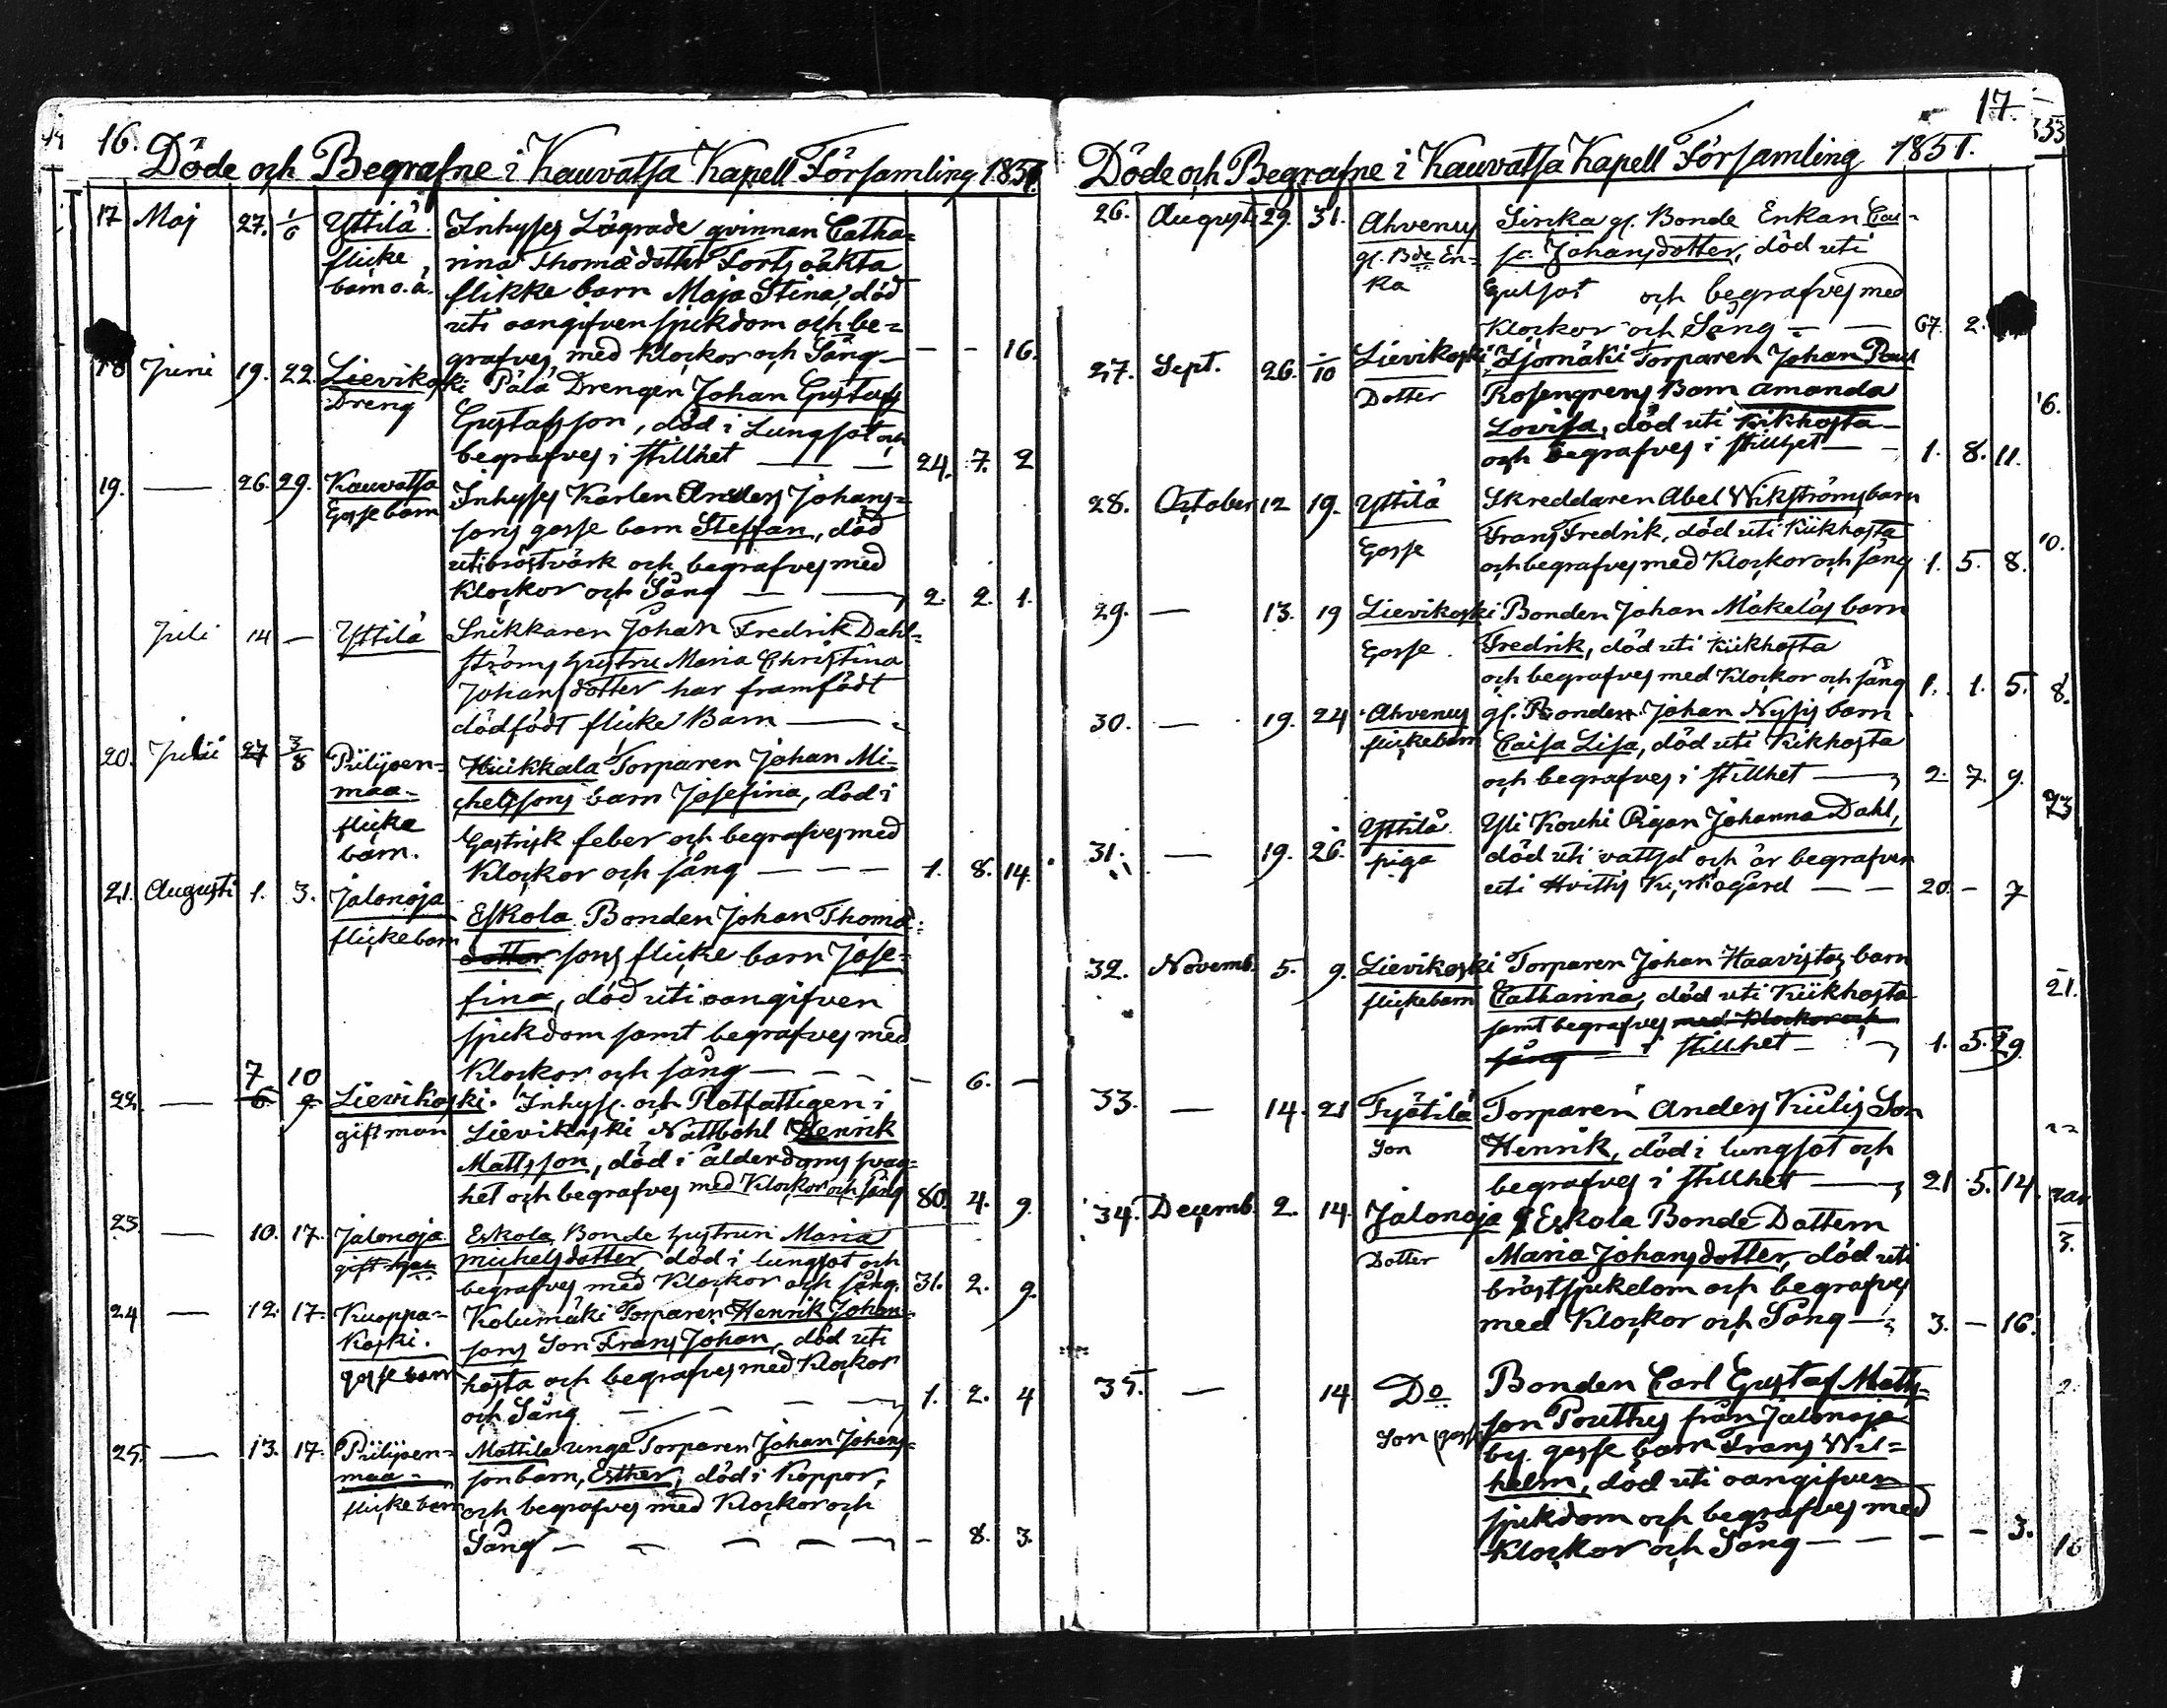 16.
Döde och Begrafne i Kauvatsa Kapell Församling 1851
17 Maj 27. 1/6 Yttilä. flicke barn o.ä. Inhyses Lägrade qvinnan Catha=
rina Thomædotter Torts oäkta
flikke barn Maja Stina, död
uti oangifven sjukdom och be=
grafves med Klockor och Sång — — — 16.
18 Juni 19. 22. Lievikoski Dreng Pälä Drengen Johan Gustafs
Gustafsson, död i Lungsot och
begrafves i stillhet — — 24. 7. 2
19. — 26. 29. Kauvatsa Gosse barn Inhyses Karlen Anders Johans=
sons gosse barn Steffan, död
uti bröstvärk och begrafves med
Klockor och Sång — — 2. 2. 1.
Juli 14 — Yttilä Snikkaren Johan Fredrik Dahl=
ströms hustru Maria Christina
Johansdotter har framfödt
dödfödt flicke Barn —
20. Julii 27 3/8 Piilijoen=maa= flicke barn. Hiukkala Torparen Johan Mi=
chelssons barn Josefina, död i
Gastrisk feber och begrafves med
Klockor och sång — — — 1. 8. 14.
21. Augusti 1. 3. Jalonoja flickebarn Eskola Bonden Johan Thomæ=
dotter sons flicke barn Jose=
fina, död uti oangifven
sjukdom samt begrafves med
Klockor och sång — — — — 6. —
7 10
22. — 6. 9. Lievikoski. gift man Inhyse och Rotfattigen i
Lievikoski Nattbohl Henrik
Mattsson, död i ålderdoms svag=
het och begrafves med Klockor och sång 80. 4. 9.
23 — 10. 17. Jalonoja gift Eskola Bonde hustrun Maria
Michelsdotter, död i lungsot och
begrafves med Klockor och sång. 31. 2. 9.
24 — 12. 17. Kuoppa=Koski. gosse barn Kolumäki Torparen Henrik Johan=
sons Son Frans Johan, död uti
hosta och begrafves med Klockor
och Sång — — — 1. 2. 4
25. — 13. 17. Piilijoen=maa= flicke barn Mattila unga Torparen Johan Johans=
son barn, Esther, död i Koppor,
och begrafves med Klockor och
Sång — — — — — 8. 3.
17.
Döde och Begrafne i Kauvatsa Kapell Församling 1851.
353
26. August. 29. 31. Ahvenus gl. Bde En=ka Sirika gl. Bonde Enkan Cai=
sa Johansdotter, död uti
Gulsot och begrafves med
Klockor och Sång — — 67. 2.
27. Sept. 26. 10 Lievikoski Dotter Ijomäki Torparen Johan Paul
Rosengrens Barn Amanda
Lovisa, död uti Kikhosta
och begrafves i stillhet — — 1. 8. 11.
28. October 12 19. Yttilä Gosse Skreddaren Abel Wikströms barn
Frans Fredrik, död uti Kiikhosta
och begrafves med Klockor och sång 1. 5. 8.
29. — 13. 19 Lievikoski Gosse. Bonden Johan Mäkeläs barn
Fredrik, död uti Kiikhosta
och begrafves med Klockor och sång 1. 1. 5.
30. — 19. 24 Ahvenus flickebarn gl. Bonden Johan Nysis barn
Caisa Lisa, död uti Kikhosta
och begrafves i stillhet — 2. 7. 9.
31. — 19. 26. Yttilä piga Yli Kouhi Pigan Johanna Dahl,
död uti vattsot och är begrafven
uti Hvittis Kyrkogård — — 20. — 7
32. Novemb. 5. 9. Lievikoski flickebarn Torparen Johan Haavistos barn
Catharina, död uti Kiikhosta
samt begrafves med Klockor och
sång i stillhet — 1. 5. 29.
33. — 14. 21 Työtilä Son Torparen Anders Kiilis Son
Henrik, död i lungsot och
begrafves i stillhet — 21 5. 14.
34. Decemb. 2. 14. Jalonoja Dotter Eskola Bonde Dottern
Maria Johansdotter, död uti
bröstsjukdom och begrafves
med Klockor och Sång — 3. — 16.
35. — 14 Do Son gosse Bonden Carl Gustaf Matts=
son Pouthus från Jalonoja
by. gosse barn Frans Wil=
helm, död uti oangifven
sjukdom och begrafves med
Klockor och Sång — — — — 3.